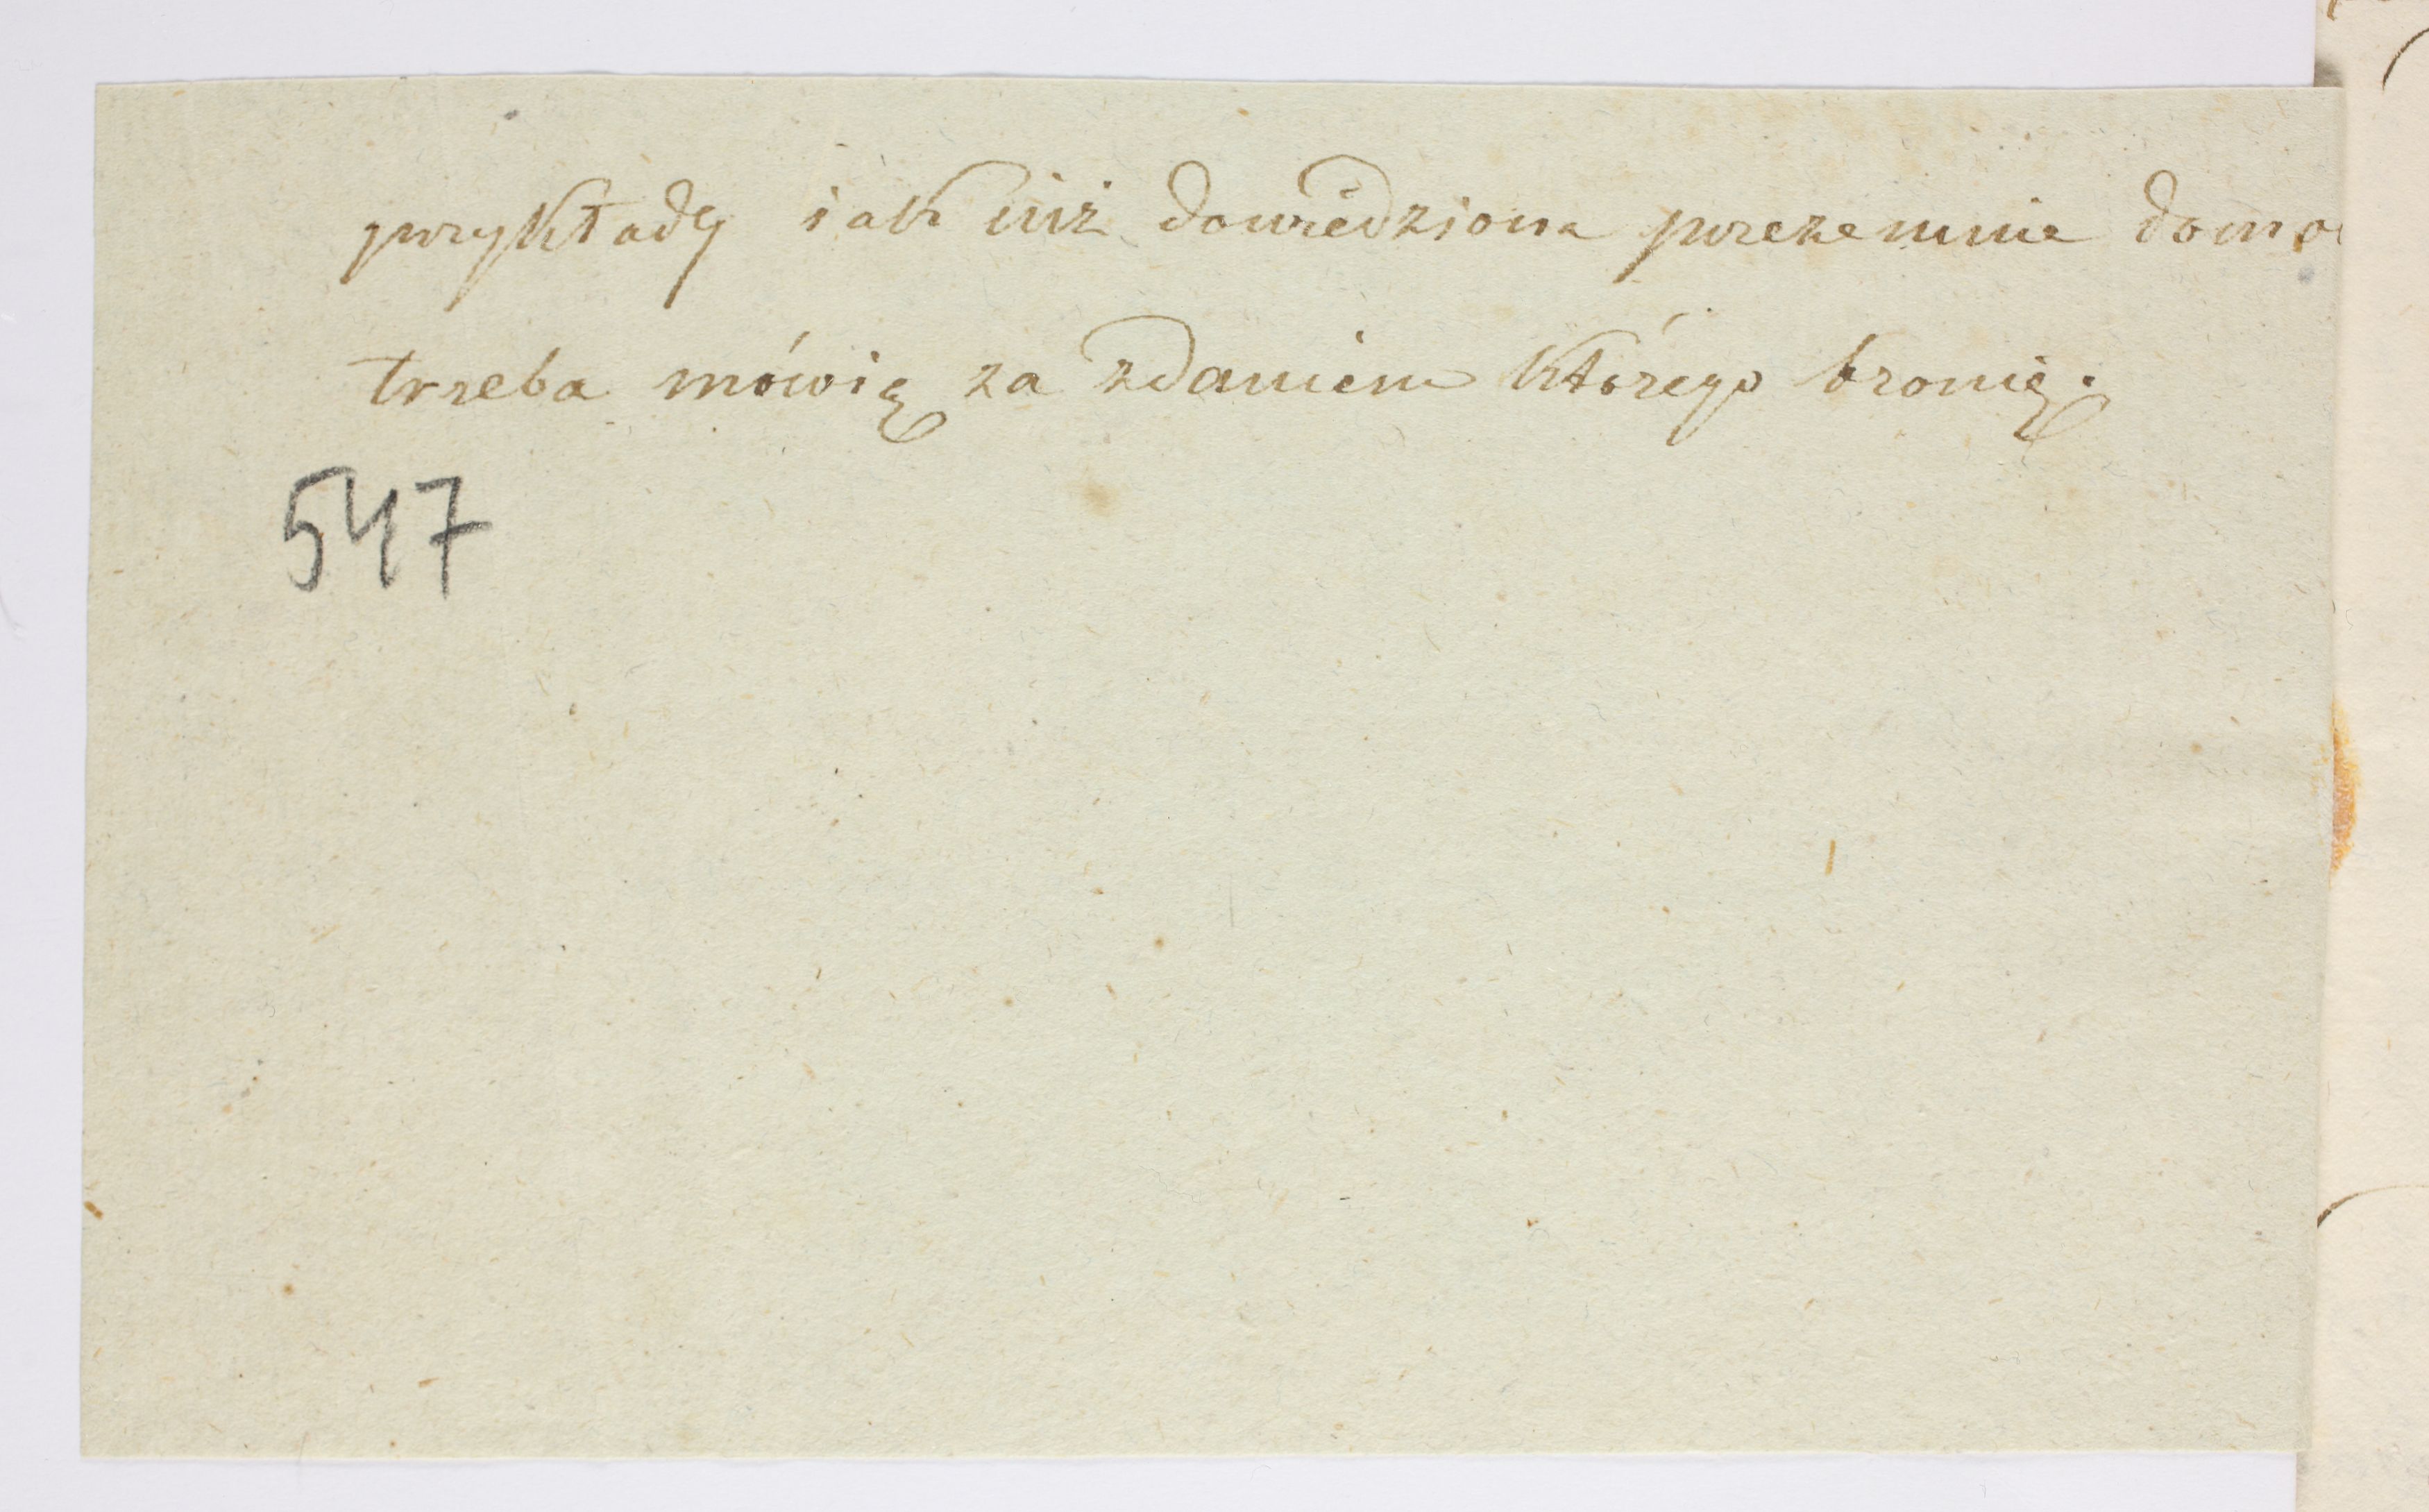 przykłady iak iuż dowiedziona przezemnie
trzeba mówią za zdaniem którego bronię.
547